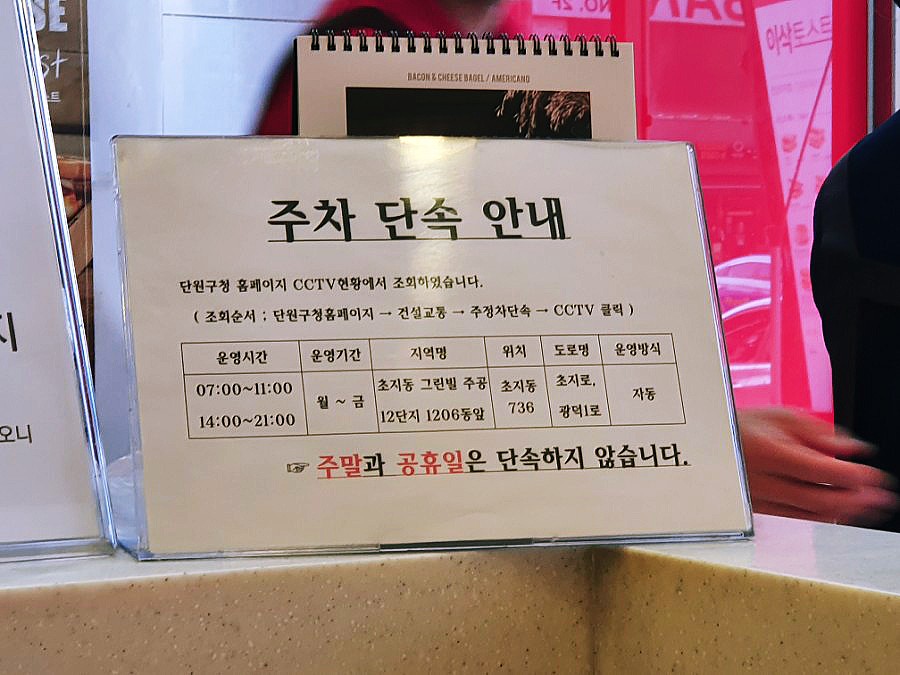 BACON & CHEESE BAGEL / AMERICANO
이삭토스트
주차 단속 안내
단원구청 홈페이지 CCTV현황에서 조회하였습니다.
( 조회순서 : 단원구청홈페이지 → 건설교통 → 주정차단속 → CCTV 클릭 )
운영시간 운영기간 지역명 위치 도로명 운영방식
07:00~11:00 14:00~21:00 월 ~ 금 초지동 그린빌 주공 12단지 1206동앞 초지동 736 초지로, 광덕1로 자동
☞ 주말과 공휴일은 단속하지 않습니다.